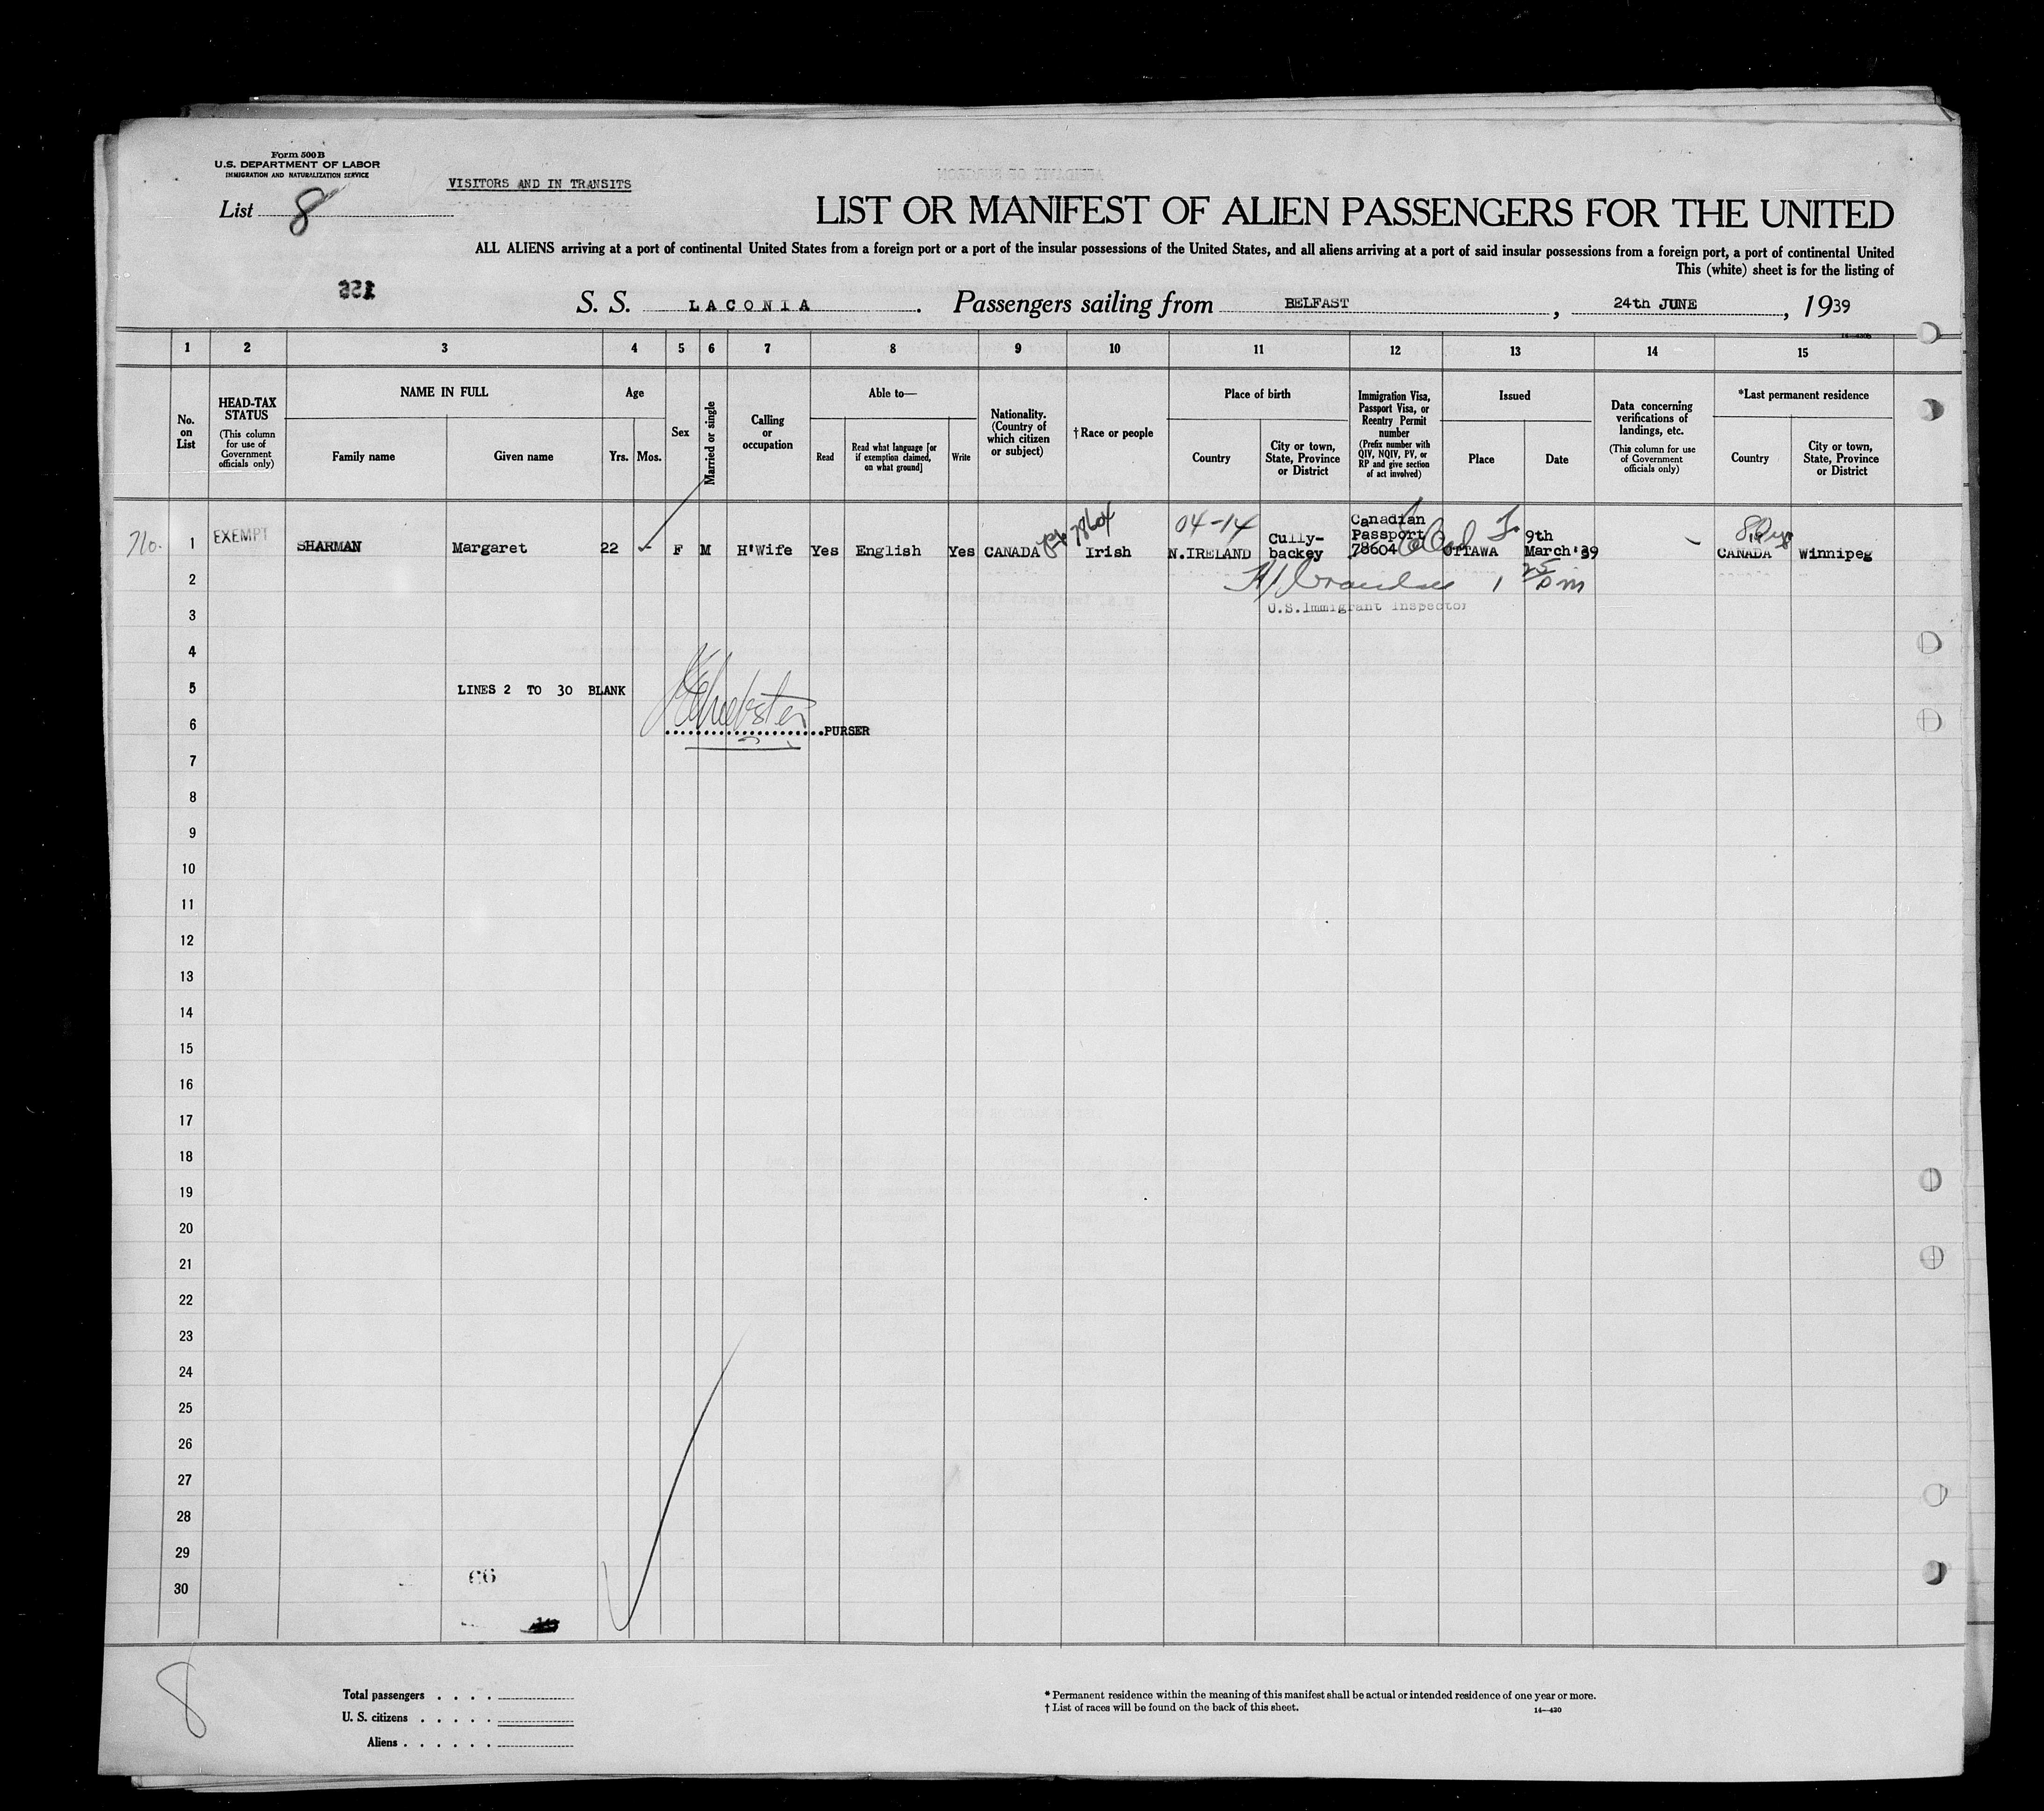 Form 500B
U.S. DEPARTMENT OF LABOR
IMMIGRATION AND NATURALIZATION SERVICE
VISITORS AND IN TRANSITS
List 8
LIST OR MANIFEST OF ALIEN PASSENGERS FOR THE UNITED
ALL ALIENS arriving at a port of continental United States from a foreign port or a port of the insular possessions of the United States, and all aliens arriving at a port of said insular possessions from a foreign port, a port of continental United
This (white) sheet is for the listing of
S. S. LACONIA. Passengers sailing from BELFAST, 24th JUNE, 1939
1 2 3 4 5 6 7 8 9 10 11 12 13 14 15
No. on List
HEAD-TAX STATUS
(This column for use of Government officials only)
NAME IN FULL
Family name
Given name
Age
Yrs.
Mos.
Sex
Married or single
Calling or occupation
Able to—
Read
Read what language [or if exemption claimed, on what ground]
Write
Nationality. (Country of which citizen or subject)
†Race or people
Place of birth
Country
City or town, State, Province or District
Immigration Visa, Passport Visa, or Reentry Permit number
(Prefix number with QIV, NQIV, PV, or RP and give section of act involved)
Issued
Place
Date
Data concerning verifications of landings, etc.
(This column for use of Government officials only)
*Last permanent residence
Country
City or town, State, Province or District
04-14
1 EXEMPT SHARMAN Margaret 22 - F M H'Wife Yes English Yes CANADA Irish N.IRELAND Cully-backey Canadian Passport 78604 OTTAWA 9th March'39 CANADA Winnipeg
78604
2
U.S. Immigrant Inspector
3
4
5 LINES 2 TO 30 BLANK
6 PURSER
7
8
9
10
11
12
13
14
15
16
17
18
19
20
21
22
23
24
25
26
27
28
29
30
8
Total passengers
U. S. citizens
Aliens
* Permanent residence within the meaning of this manifest shall be actual or intended residence of one year or more.
† List of races will be found on the back of this sheet.
14—430